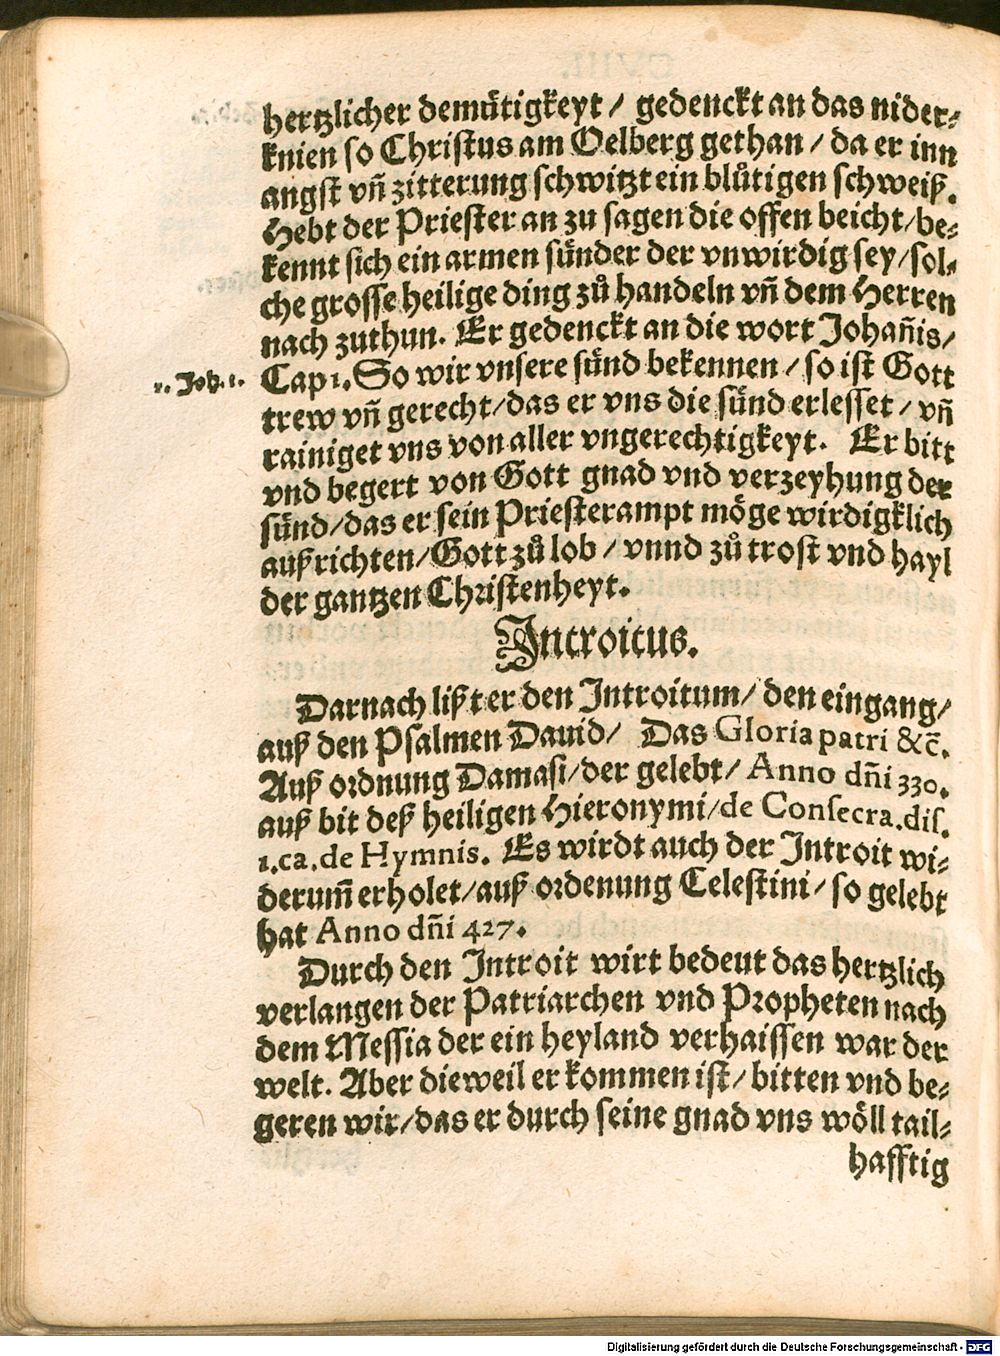 hertzlicher demuͤtigkeyt / gedenckt an das nider⸗
knien so Christus am Oelberg gethan / da er inn
angst vñ zitterung schwitzt ein bluͦtigen schweiß.
Hebt der Priester an zu sagen die offen beicht / be⸗
kennt sich ein armen suͤnder der vnwirdig sey / sol⸗
che grosse heilige ding zuͦ handeln vñ dem Herren
nach zuthun. Er gedenckt an die wort Johañis /
1. Joh. 1. Cap 1. So wir vnsere suͤnd bekennen / so ist Gott
trew vñ gerecht / das er vns die suͤnd erlesset / vñ
rainiget vns von aller vngerechtigkeyt. Er bitt
vnd begert von Gott gnad vnd verzeyhung der
suͤnd / das er sein Priesterampt moͤge wirdigklich
außrichten / Gott zuͦ lob / vnnd zuͦ trost vnd hayl
der gantzen Christenheyt.
Introitus.
Darnach lißt er den Introitum / den eingang /
auß den Psalmen Dauid / Das Gloria patri &c̄.
Auß ordnung Damasi / der gelebt / Anno dñi 330.
auß bit deß heiligen Hieronymi / de Consecra. dis.
1. ca. de Hymnis. Es wirdt auch der Introit wi⸗
derum̃ erholet / auß ordenung Celestini / so gelebt
hat Anno dñi 427.
Durch den Introit wirt bedeut das hertzlich
verlangen der Patriarchen vnd Propheten nach
dem Messia der ein heyland verhaissen war der
welt. Aber dieweil er kommen ist / bitten vnd be⸗
geren wir / das er durch seine gnad vns woͤll tail⸗
hafftig
Digitalisierung gefördert durch die Deutsche Forschungsgemeinschaft - DFG